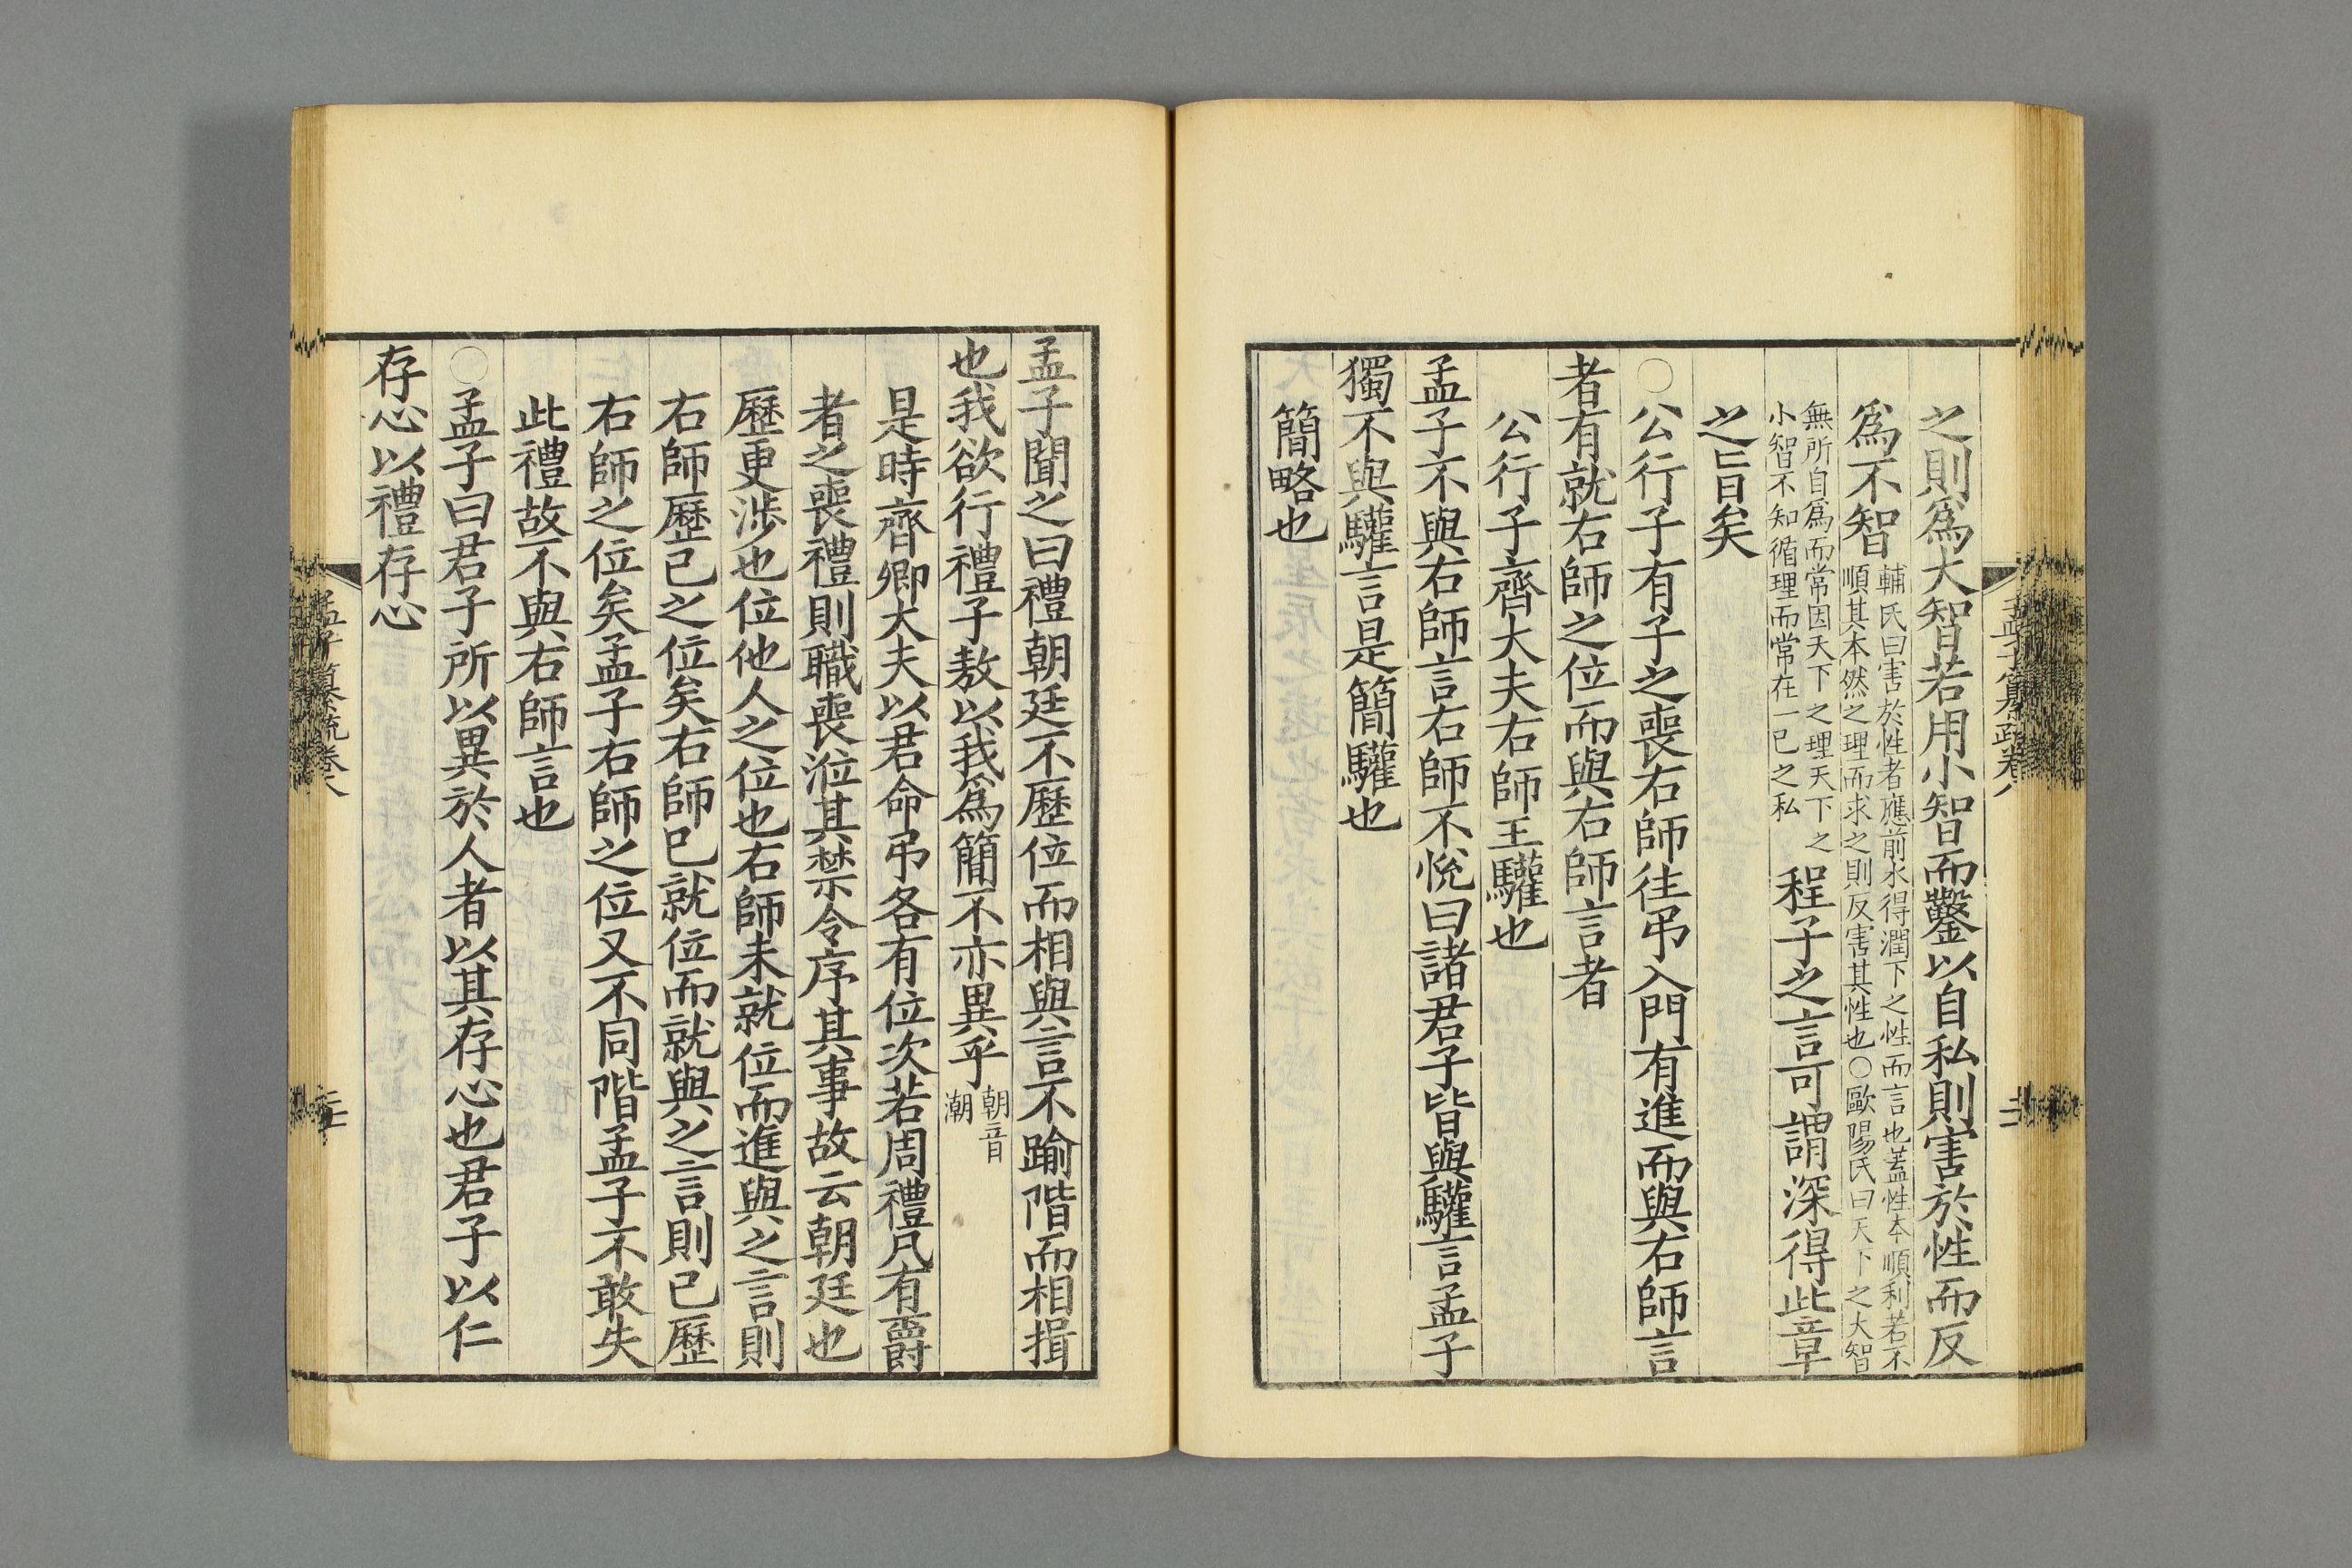 之則爲大智若用小智而鑿以自私則害於性而反
爲不智
輔氏曰害於性者應前水得潤下之性而言也蓋性本順利若不
順其本然之理而求之則反害其性也○歐陽氏曰天下之大智
無所自爲而常因天下之理天下之
小智不知循理而常在一己之私
程子之言可謂深得此章
之旨矣
○公行子有子之喪右師往弔入門有進而與右師言
者有就右師之位而與右師言者
公行子齊大夫右師王驩也
孟子不與右師言右師不悅曰諸君子皆與驩言孟子
獨不與驩言是簡驩也
簡略也
孟子纂疏卷八
孟子聞之曰禮朝廷不歷位而相與言不踰階而相揖
也我欲行禮子敖以我爲簡不亦異乎
朝音
潮
是時齊卿大夫以君命弔各有位次若周禮凡有爵
者之喪禮則職喪涖其禁令序其事故云朝廷也
歷更涉也位他人之位也右師未就位而進與之言則
右師歷己之位矣右師已就位而就與之言則己歷
右師之位矣孟子右師之位又不同階孟子不敢失
此禮故不與右師言也
○孟子曰君子所以異於人者以其存心也君子以仁
存心以禮存心
孟子纂疏卷八